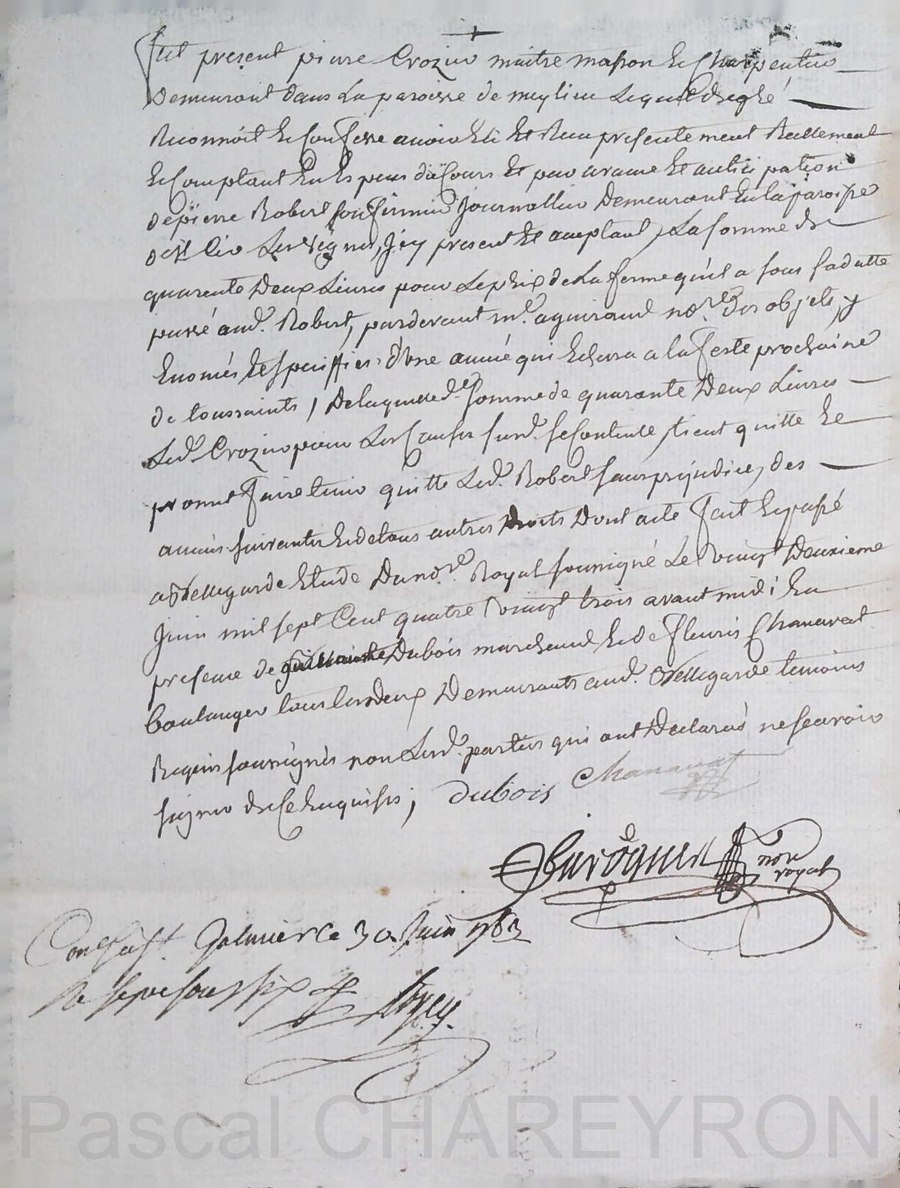 fut present pierre Crozier maitre masson et Charpentier
Demeurant dans La paroisse de meylieu Lequel de gré
Reconnoit et Confesse avoir Eu et Reçu présentement Reellement
et Comptant En Especes du Cours et par avance et anticipation
de pierre Robert son fermier Journallier Demeurant En la paroisse
present et acceptant, La somme de
quarente Deux Livres pour Le prix de La ferme qu'il a sous sa datte
passé aud. Robert, pardevant me. nore. Des objets y
Enoncés et speciffiés d'une année qui Echera a la feste prochaine
de toussaints, De laquelle de. somme de quarante Deux Livres
Led. Crozier pour Les Causes surd. se Contente, tient quitte et
promet faire tenir quitte Led. Robert sans prejudice, des
années suivantes et de tous autres Droits Dont acte fait et passé
a Bellegarde Etude Dud. nore. Royal sousigné Le vingt Deuxieme
Juin mil sept Cent quatre vingt trois avant midi En
presence de Dubois marchand et de fleuris Chanavat
boulanger tous Les deux Demeurants aud. Bellegarde temoins
Requis sousignés non Lesd. parties qui ont Declarés ne scavoir
signer de Ce Enquises;   Dubois   Chanavat
nore
royal
Galmier Ce 30 Juin 1783
Pascal CHAREYRON